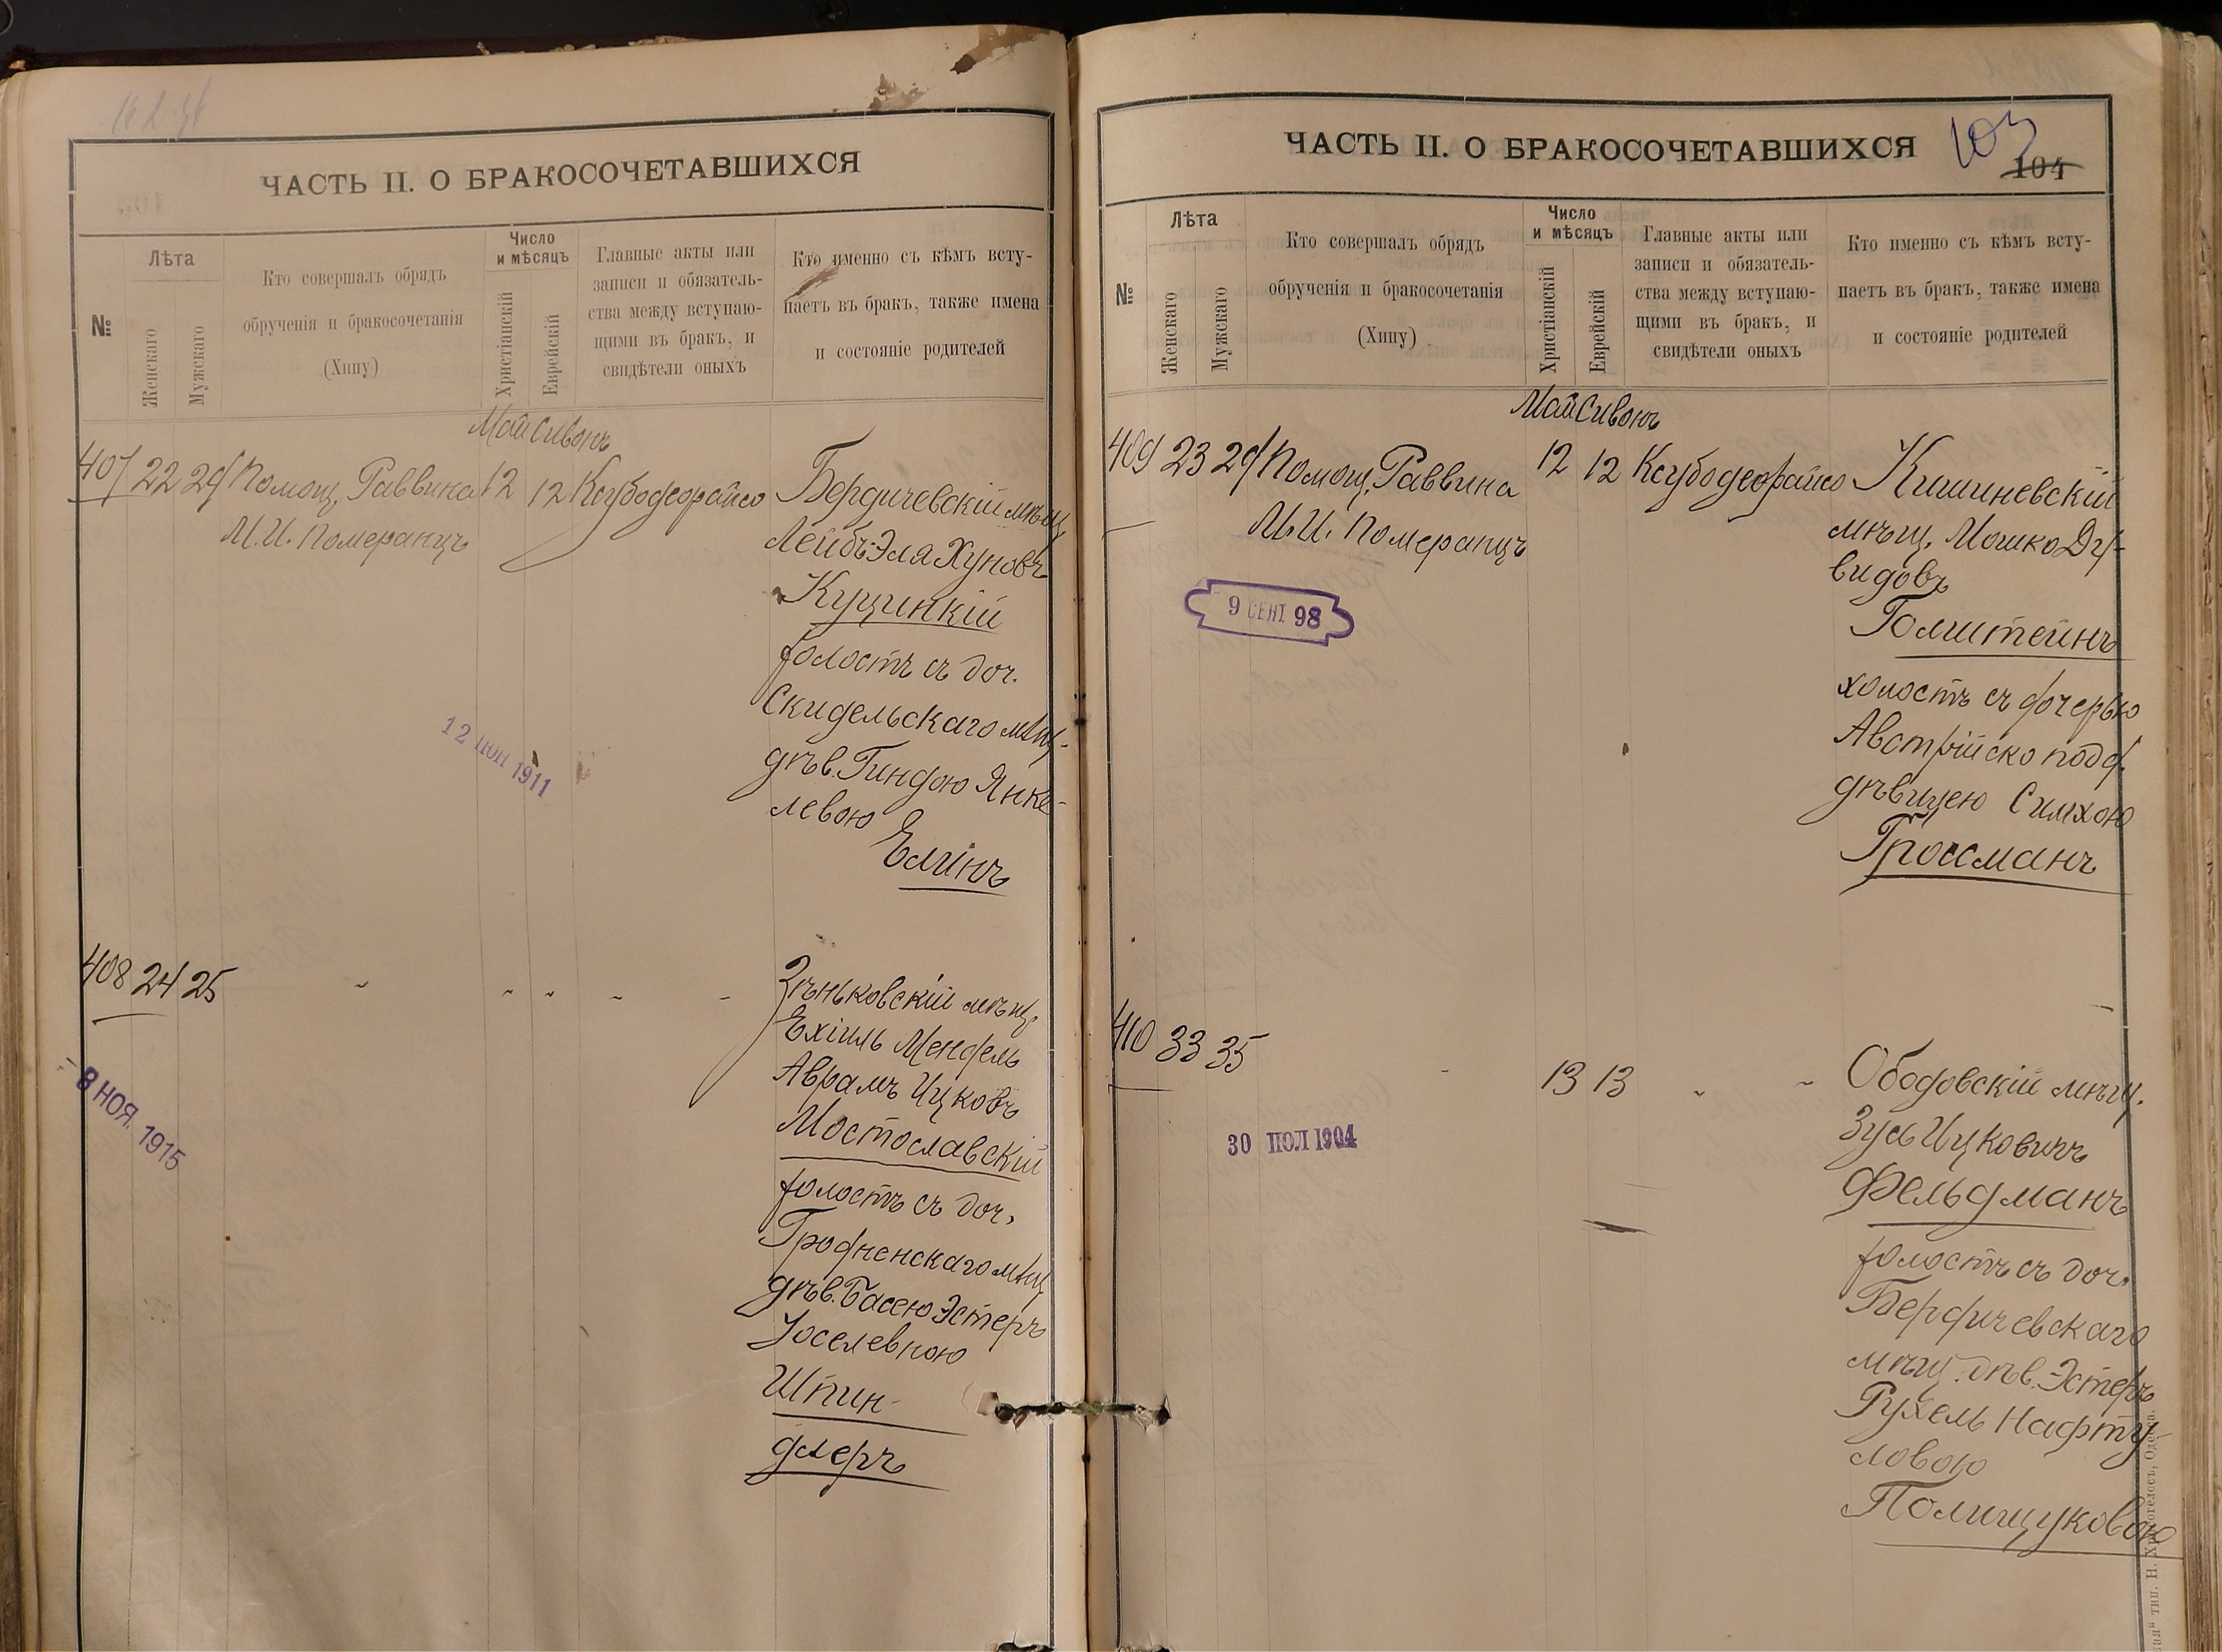 ЧАСТЬ II. О БРАКОСОЧЕТАВШИХСЯ
№
Лѣта
Женскаго
Мужскаго
Кто совершалъ обрядъ
обрученія и бракосочетанія
(Хипу)
Число
и мѣсяцъ
Христіанскій
Еврейскій
Главные акты или
записи и обязатель-
ства между вступаю-
щими въ бракъ, и
свидѣтели оныхъ
Кто именно съ кѣмъ всту-
паетъ въ бракъ, также имена
и состояніе родителей
Май Сивонъ
407 22 29 Помощ. Раввина 12 12 Ксубодеорайсо
М. И. Померанцъ
Бердичевскій мѣщ.
Лейбъ-Эля Хуновъ
Куцинкій
холостъ съ доч.
Скидельскаго мѣщ.
дѣв. Гиндою Янке-
левою
Елинъ
12 ІЮН 1911
408 24 25 " " " " "
Зѣньковскій мѣщ.
Ехіиль Мендель
Аврамъ Ицковъ
Мостославскій
холостъ съ доч.
Гродненскаго мѣщ
дѣв. Басею Эстеръ
Іоселевною
Шпин-
длеръ
- 8 НОЯ. 1915
ЧАСТЬ II. О БРАКОСОЧЕТАВШИХСЯ
103
104
№
Лѣта
Женскаго
Мужскаго
Кто совершалъ обрядъ
обрученія и бракосочетанія
(Хипу)
Число
и мѣсяцъ
Христіанскій
Еврейскій
Главные акты или
записи и обязатель-
ства между вступаю-
щими въ бракъ, и
свидѣтели оныхъ
Кто именно съ кѣмъ всту-
паетъ въ бракъ, также имена
и состояніе родителей
Май Сивонъ
409 23 29 Помощ. Раввина 12 12 Ксубодеорайсо
М. И. Померанцъ
9 СЕНТ. 98
Кишиневскій
мѣщ. Мошко Ду-
видовъ
Голштейнъ
холостъ съ дочерью
Австрійско подд.
дѣвицею Симхою
Гроссманъ
410 33 35 " 13 13 " "
30 ІЮЛ 1904
Ободовскій мѣщ.
Зусь Ицковичъ
Фельдманъ
холостъ съ доч.
Бердичевскаго
мѣщ. дѣв. Эстеръ
Рухель Нафту
ловою
Полищуковою
тип. Н. Хрисогелосъ, Одесса.